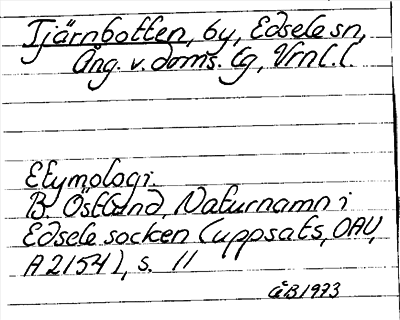 Tjärnbotten, by, Edsele sn,
Ång. v. doms. lg, Vrnl. l.
Etymologi.
B. Östlund, Naturnamn i
Edsele socken (uppsats, OAU,
A 2154), s. 11
ÅB 1973